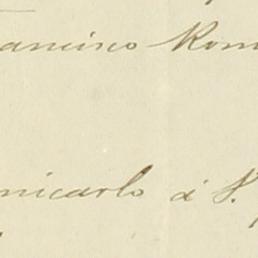 ancisco Rom
nicarlo á S.